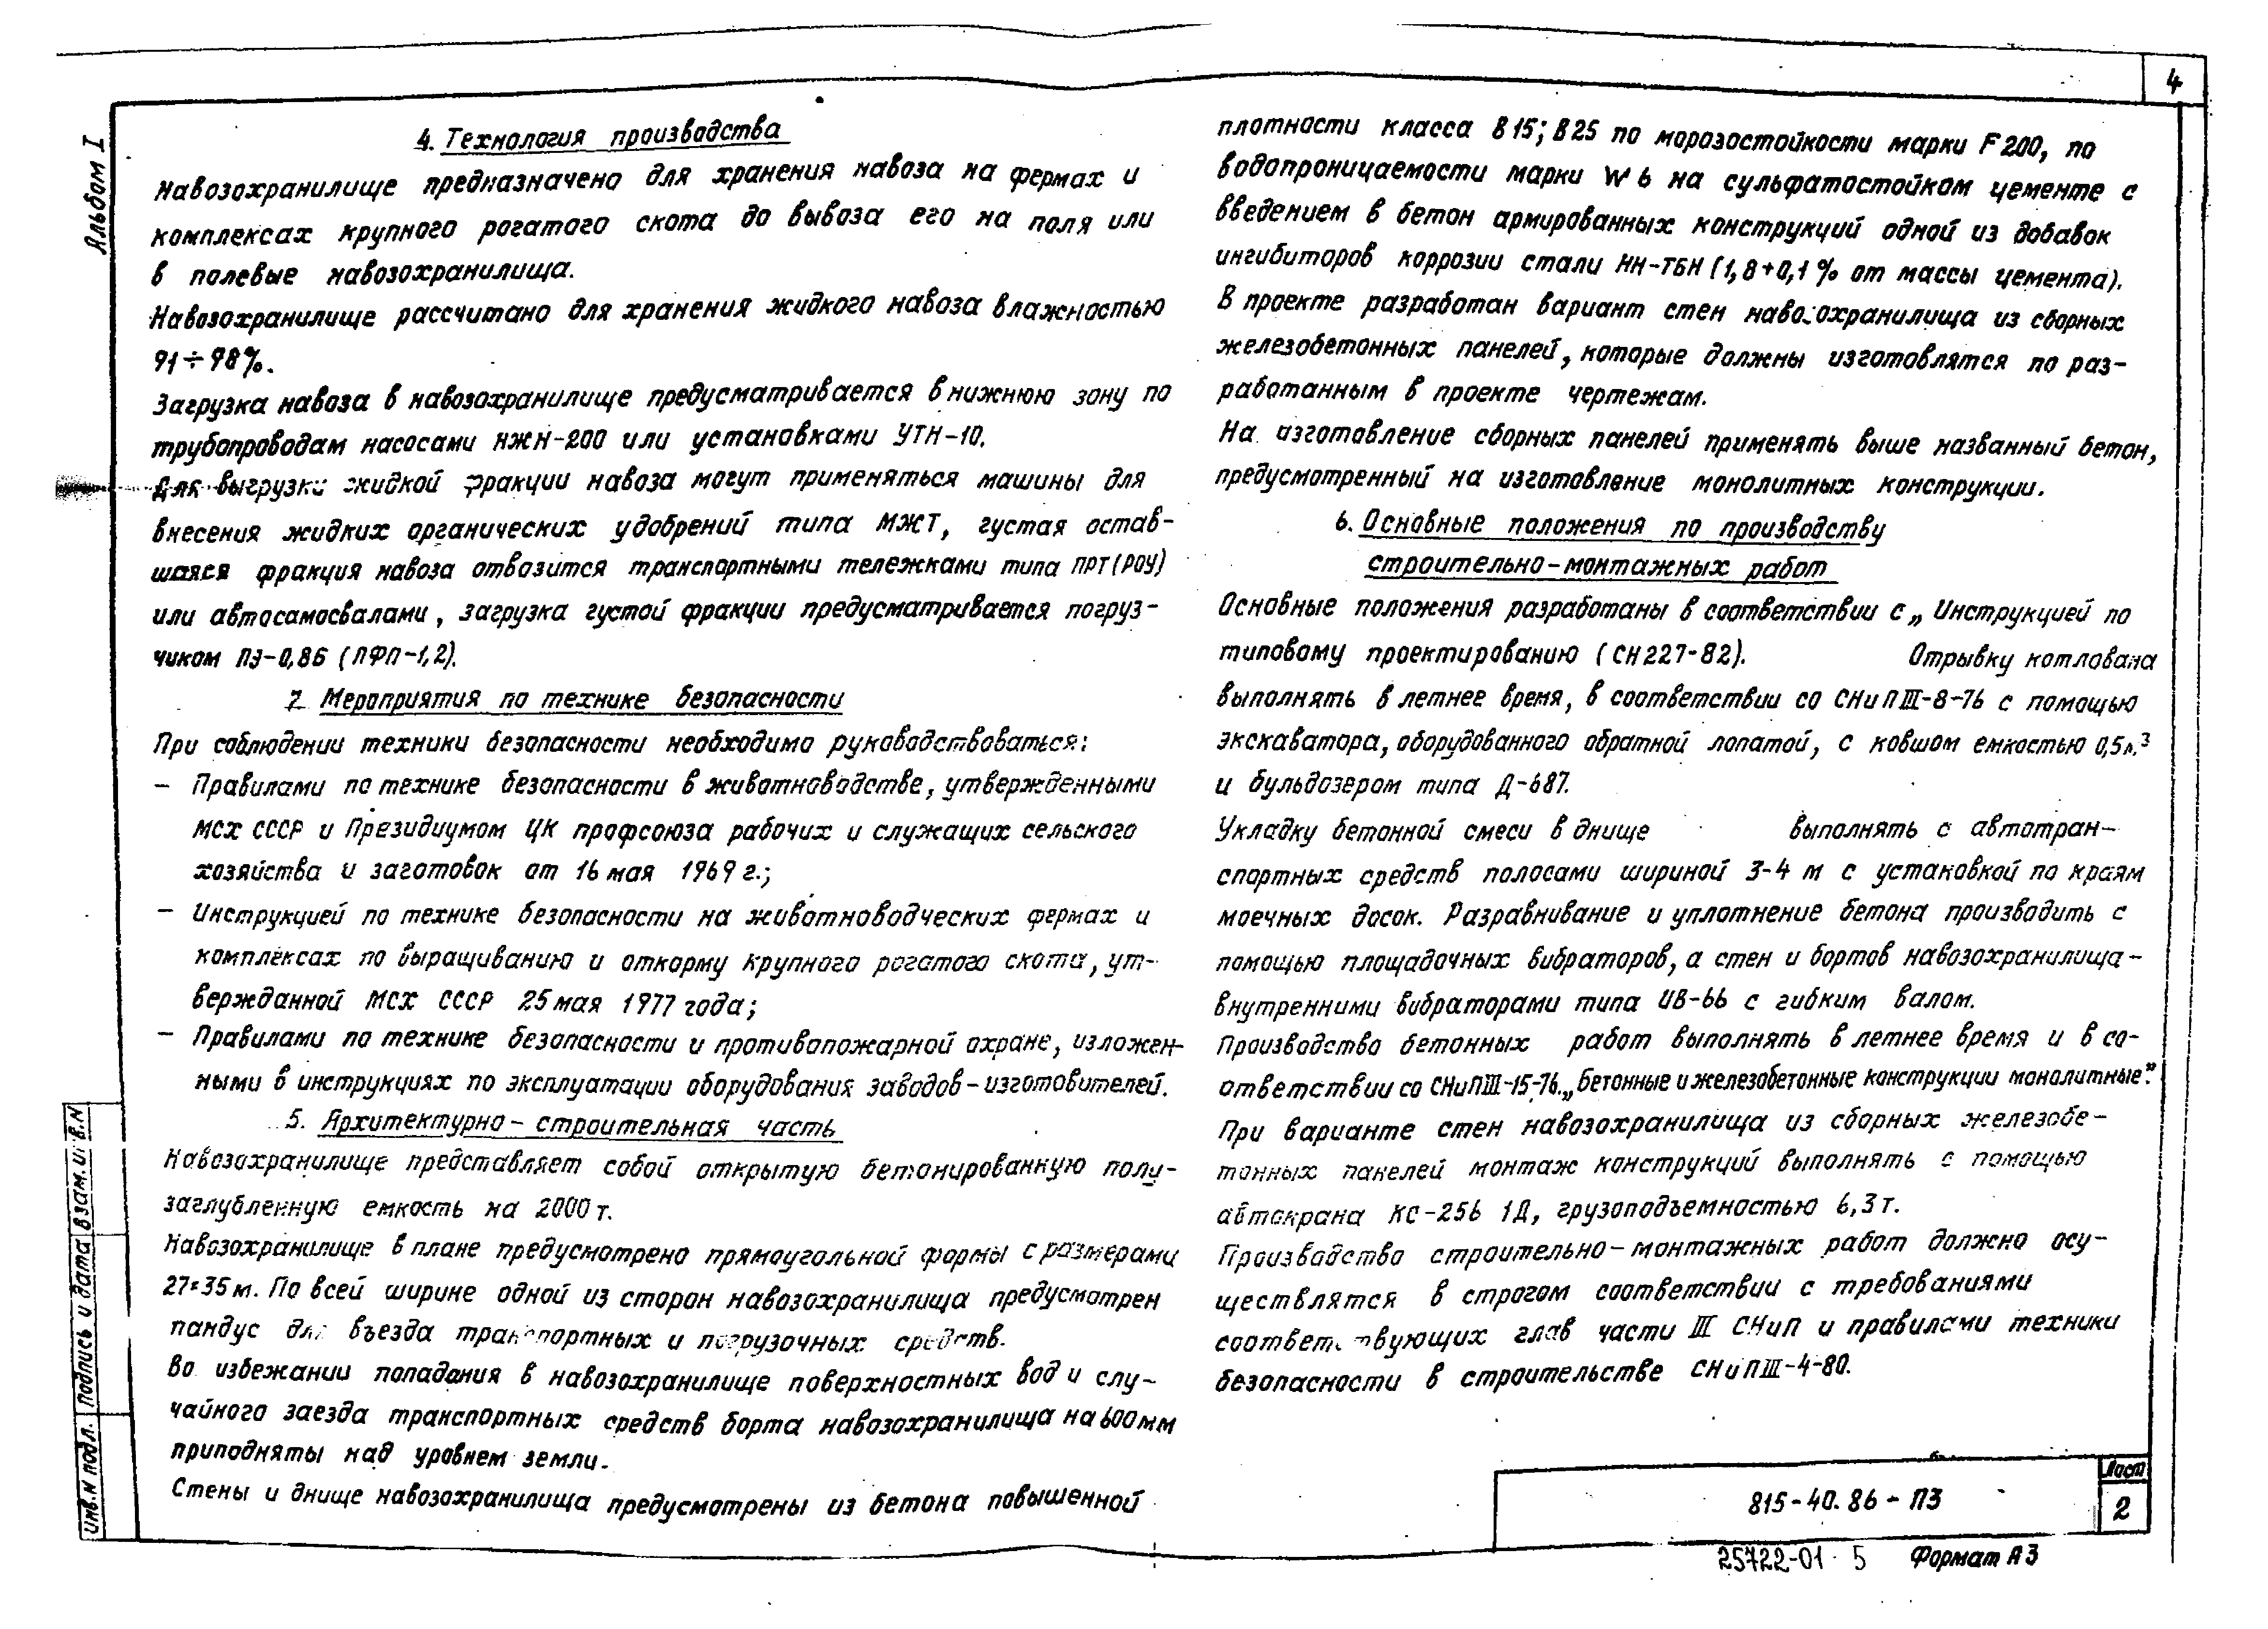 4
Альбом I
4. Технология производства
Навозохранилище предназначено для хранения навоза на фермах и
комплексах крупного рогатого скота до вывоза его на поля или
в полевые навозохранилища.
Навозохранилище рассчитано для хранения жидкого навоза влажностью
91÷98%.
Загрузка навоза в навозохранилище предусматривается в нижнюю зону по
трубопроводам насосами НЖН-200 или установками УТН-10.
Для выгрузки жидкой фракции навоза могут применяться машины для
внесения жидких органических удобрений типа МЖТ, густая остав-
шаяся фракция навоза отвозится транспортными тележками типа ПРТ(РОУ)
или автосамосвалами, загрузка густой фракции предусматривается погруз-
чиком ПЭ-0,8Б (ПФП-1,2).
7. Мероприятия по технике безопасности
При соблюдении техники безопасности необходимо руководствоваться:
– Правилами по технике безопасности в животноводстве, утвержденными
МСХ СССР и Президиумом ЦК профсоюза рабочих и служащих сельского
хозяйства и заготовок от 16 мая 1969 г.;
– Инструкцией по технике безопасности на животноводческих фермах и
комплексах по выращиванию и откорму крупного рогатого скота, ут-
вержданной МСХ СССР 25 мая 1977 года;
– Правилами по технике безопасности и противопожарной охране, изложен-
ными в инструкциях по эксплуатации оборудования заводов-изготовителей.
5. Архитектурно-строительная часть
Навозохранилище представляет собой открытую бетонированную полу-
заглубленную емкость на 2000 т.
Навозохранилище в плане предусмотрено прямоугольной формы с размерами
27×35 м. По всей ширине одной из сторон навозохранилища предусмотрен
пандус для въезда транспортных и погрузочных средств.
Во избежании попадания в навозохранилище поверхностных вод и слу-
чайного заезда транспортных средств борта навозохранилища на 600 мм
приподняты над уровнем земли.
Стены и днище навозохранилища предусмотрены из бетона повышенной
плотности класса В15; В25 по морозостойкости марки F200, по
водопроницаемости марки W6 на сульфатостойком цементе с
введением в бетон армированных конструкций одной из добавок
ингибиторов коррозии стали НН-ТБН (1,8+0,1% от массы цемента).
В проекте разработан вариант стен навозохранилища из сборных
железобетонных панелей, которые должны изготовлятся по раз-
работанным в проекте чертежам.
На изготовление сборных панелей применять выше названный бетон,
предусмотренный на изготовление монолитных конструкции.
6. Основные положения по производству
строительно-монтажных работ
Основные положения разработаны в соответствии с „Инструкцией по
типовому проектированию (СН 227-82). Отрывку котлована
выполнять в летнее время, в соответствии со СНиП III-8-76 с помощью
экскаватора, оборудованного обратной лопатой, с ковшом емкостью 0,5м.³
и бульдозером типа Д-687.
Укладку бетонной смеси в днище выполнять с автотран-
спортных средств полосами шириной 3-4 м с установкой по краям
маечных досок. Разравнивание и уплотнение бетона производить с
помощью площадочных вибраторов, а стен и бортов навозохранилища-
внутренними вибраторами типа ИВ-66 с гибким валом.
Производство бетонных работ выполнять в летнее время и в со-
ответствии со СНиП III-15-76 „Бетонные и железобетонные конструкции монолитные".
При варианте стен навозохранилища из сборных железобе-
тонных панелей монтаж конструкций выполнять с помощью
автокрана КС-256 1Д, грузоподъемностью 6,3 т.
Производство строительно-монтажных работ должно осу-
ществлятся в строгом соответствии с требованиями
соответствующих глав части III СНиП и правилами техники
безопасности в строительстве СНиП III-4-80.
инв.N подл. Подпись и дата Взам. инв.N
815-40.86-ПЗ
Лист
2
25722-01 5 Формат А3